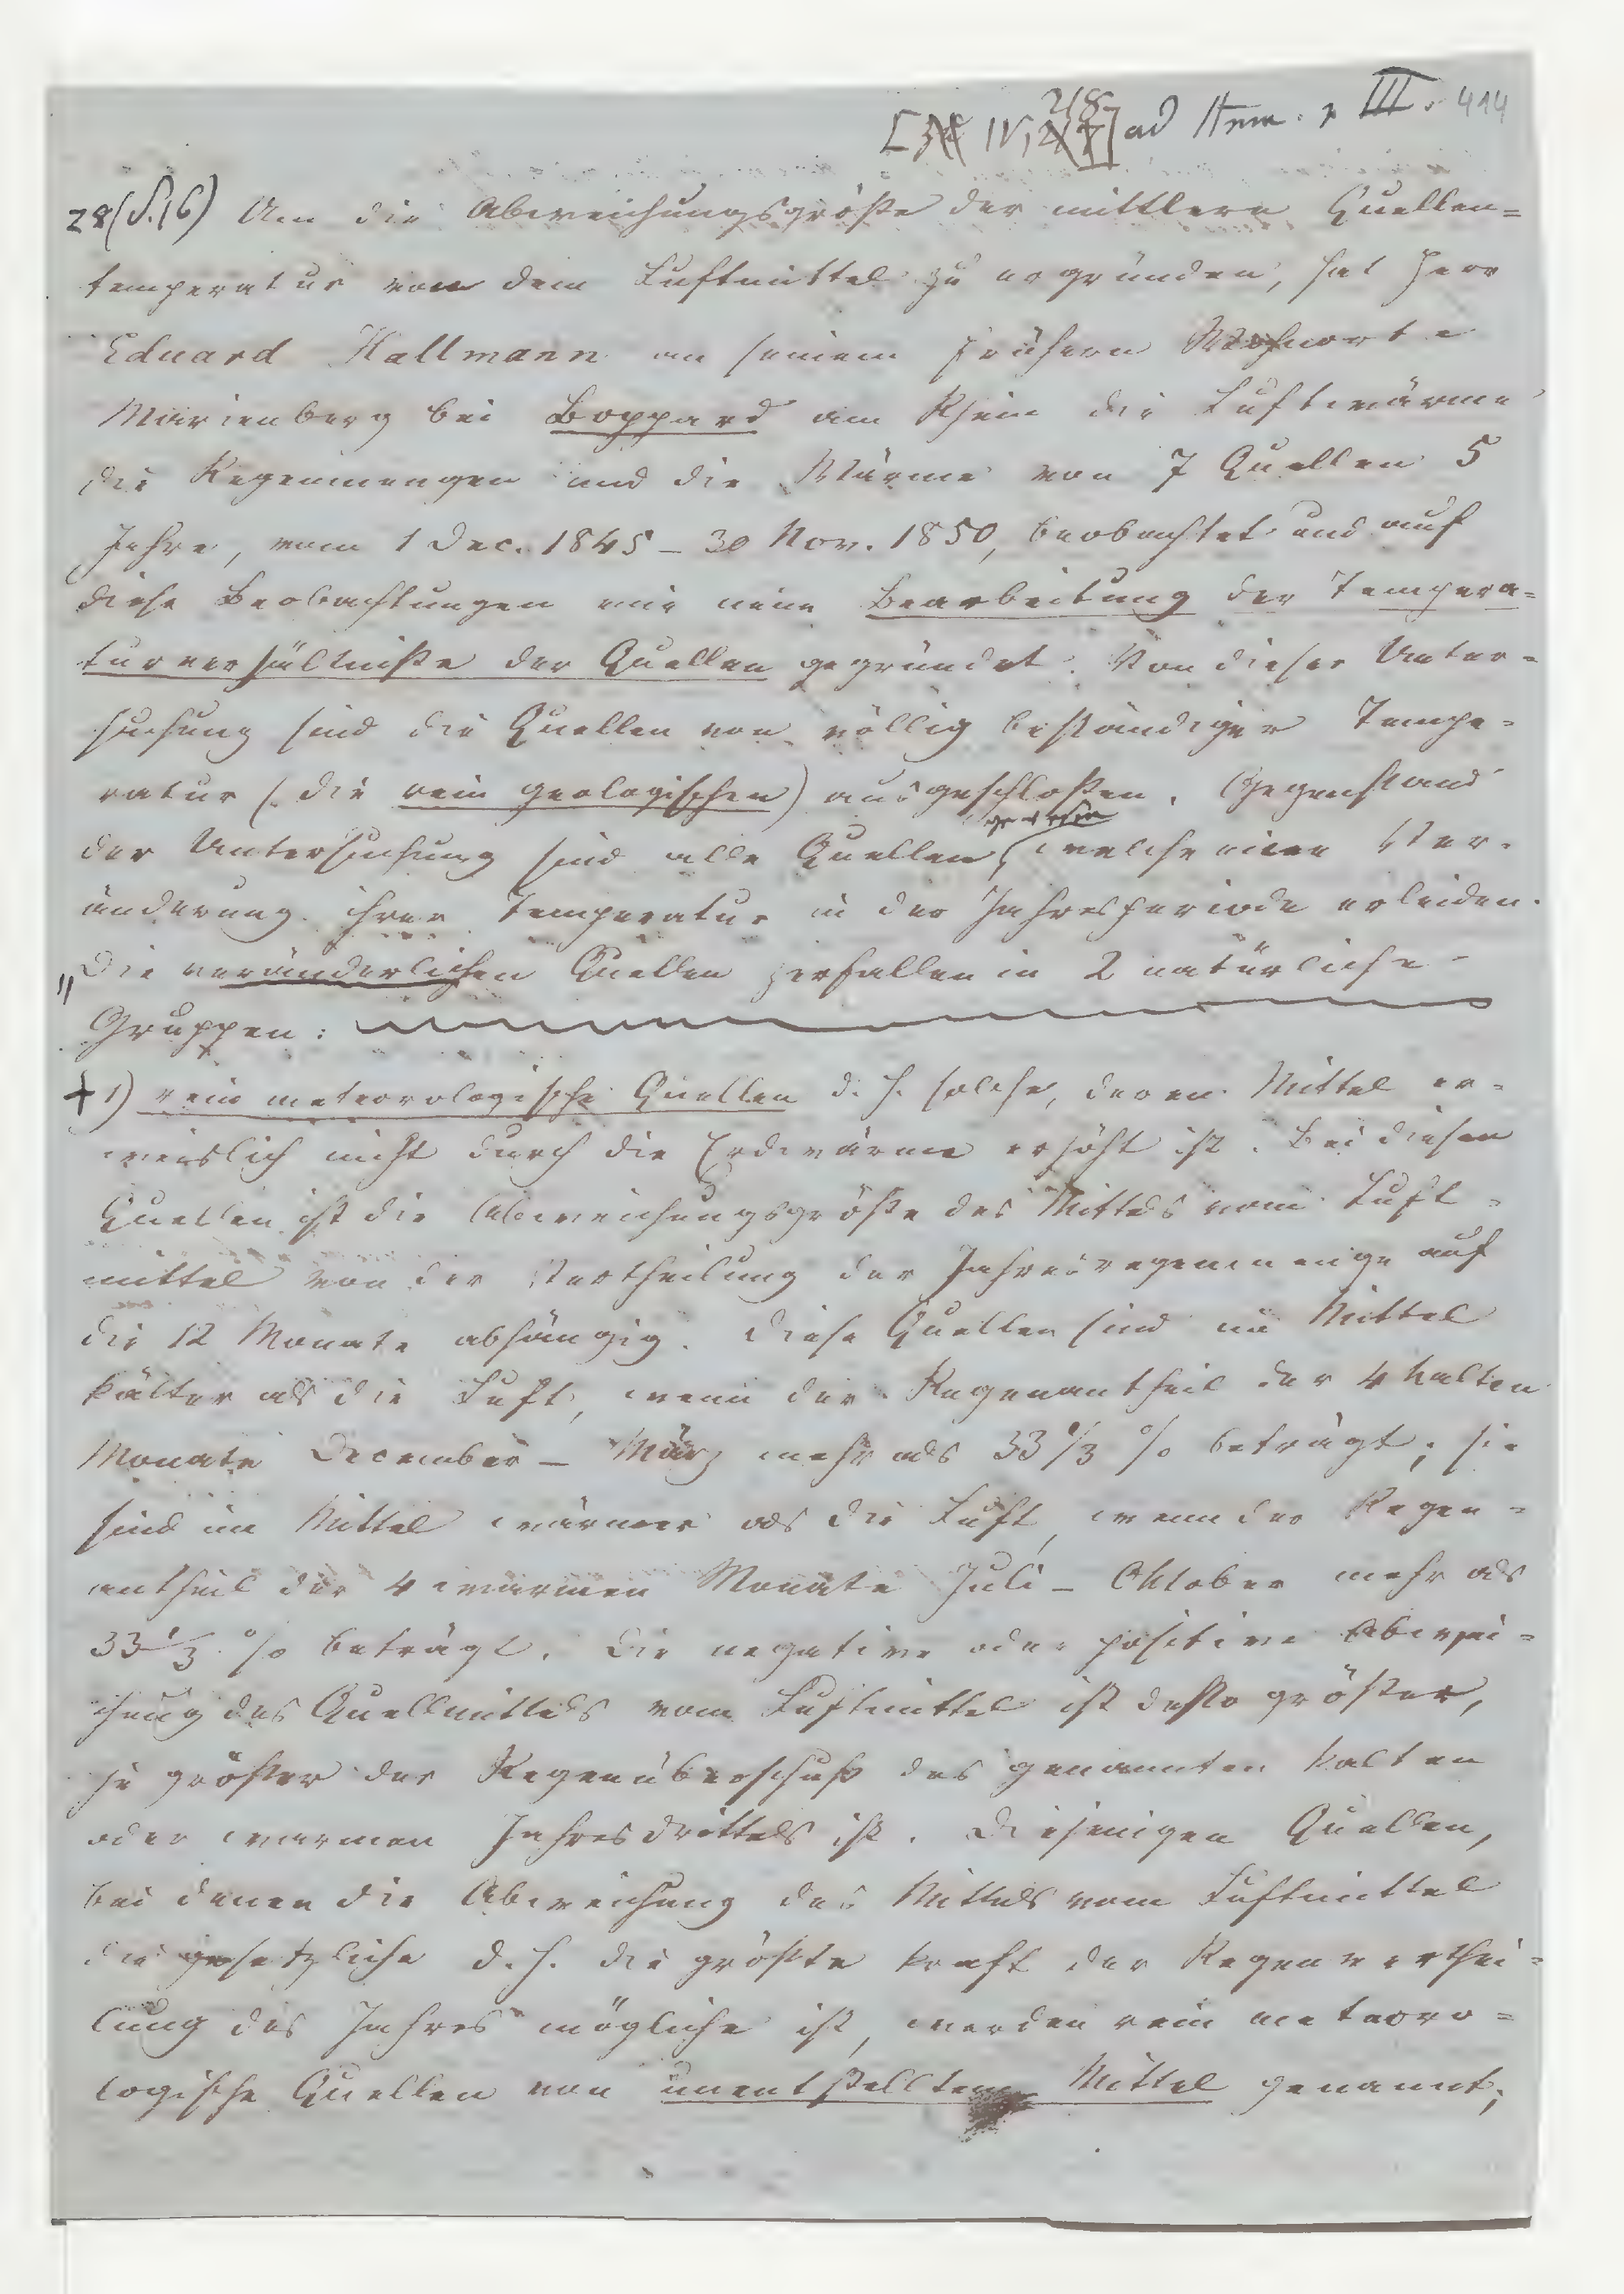 218
IV, ad Anm. z III. 414
28 (S. 16) Um die Abweichungsgröße der mittlern Quellen=
temperatur von dem Luftmittel zu ergründen, hat Herr
Eduard Hallmann an seinem frühern Wohnorte
Marienberg bei Boppard am Rhein die Luftwärme
die Regenmengen und die Wärme von 7 Quellen 5
Jahre, vom 1 Dec. 1845 – 30 Nov. 1850, beobachtet und auf
diese Beobachtungen eine neue Bearbeitung der Tempera=
turverhältniße der Quellen gegründet. Von dieser Unter=
suchung sind die Quellen von völlig beständiger Tempe=
ratur (die rein geologischen) ausgeschloßen. Gegenstand
gewesen
der Untersuchung sind alle Quellen, welche eine Ver=
änderung ihrer Temperatur in der Jahresperiode erleiden.
„Die veränderlichen Quellen zerfallen in 2 natürliche
Gruppen:
+ 1) rein meteorologische Quellen d. h. solche, deren Mittel er=
weislich nicht durch die Erdwärme erhöht ist. Bei diesen
Quellen ist die Abweichungsgröße des Mittels vom Luft=
mittel von der Vertheilung der Jahresregenmenge auf
die 12 Monate abhängig. Diese Quellen sind im Mittel
kälter als die Luft, wenn der Regenantheil der 4 kalten
Monate December – März mehr als 33 1/3 % beträgt; sie
sind im Mittel wärmer als die Luft, wenn der Regen=
antheil der 4 warmen Monate Juli – Oktober mehr als
33 1/3 % beträgt. Die negative oder positive Abwei=
chung des Quellmittels vom Luftmittel ist desto größer,
je größer der Regenüberschuß des genannten kalten
oder warmen Jahresdrittels ist. Diejenigen Quellen,
bei denen die Abweichung des Mittels vom Luftmittel
die gesetzliche d. h. die größte kraft der Regenverthei=
lung des Jahres mögliche ist, werden rein meteoro=
logische Quellen von unentstelltem Mittel genannt;